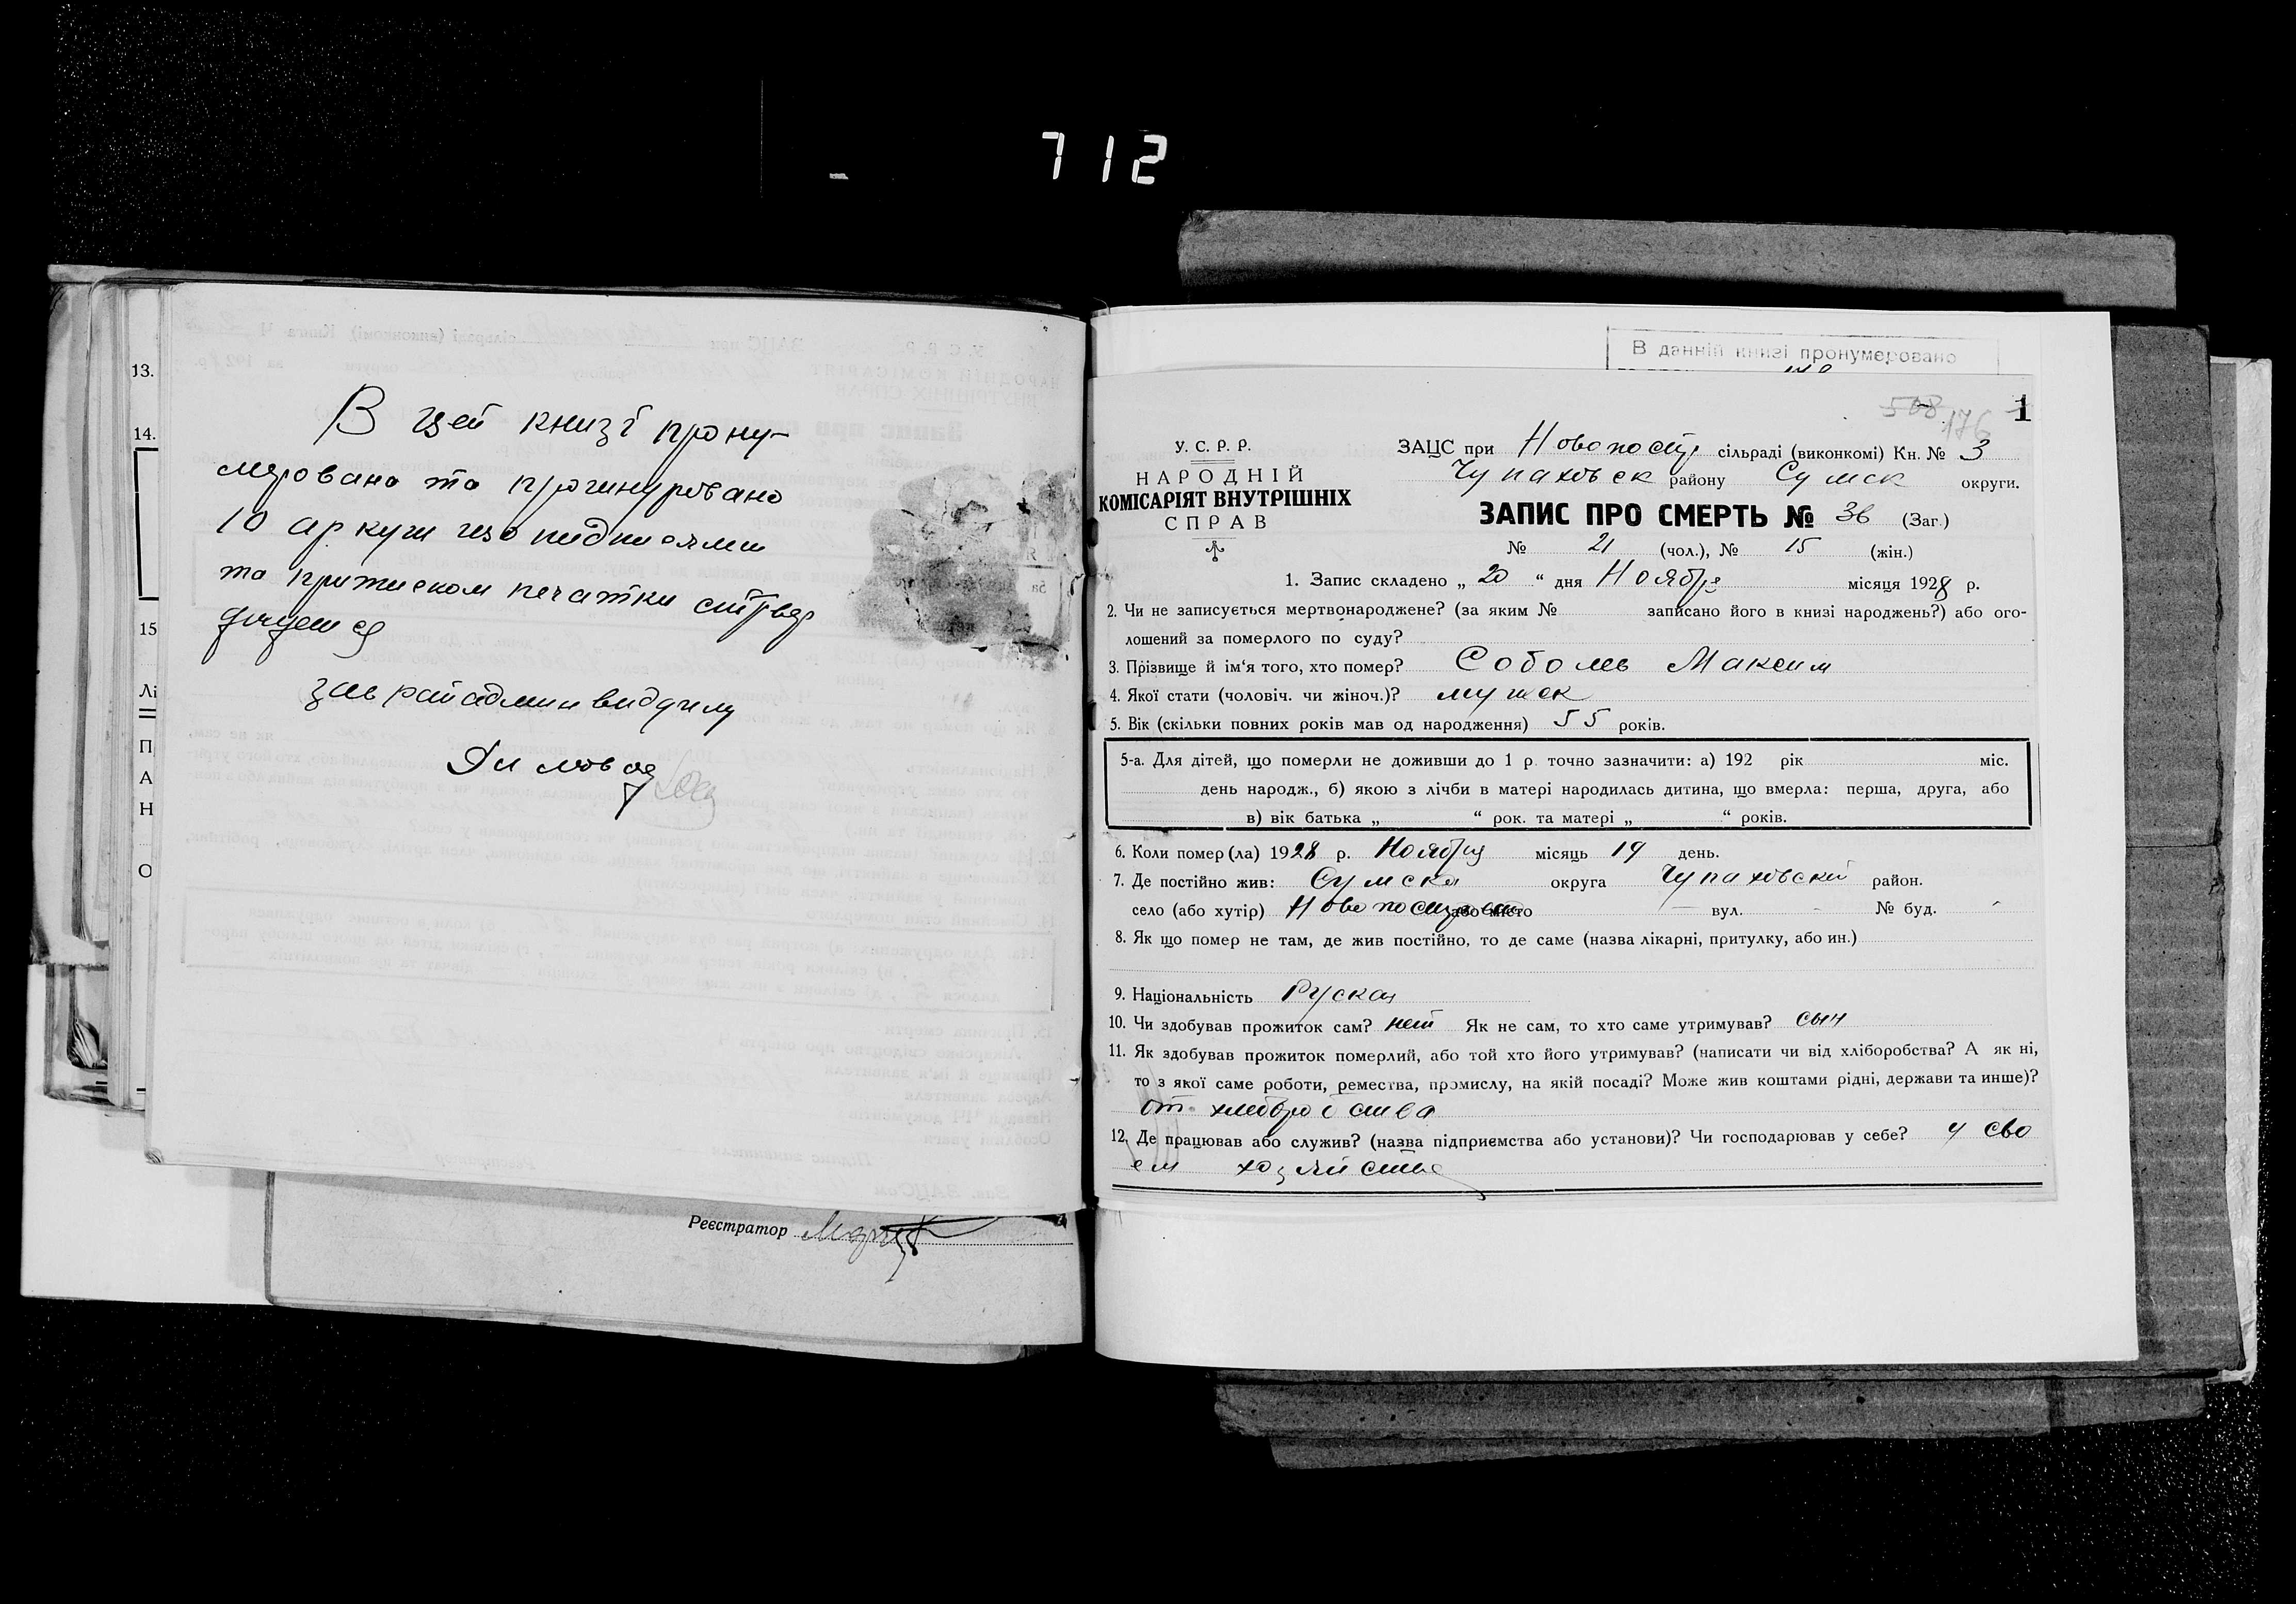 712
13.
14.
15
Лі
П
А
Н
О
В цей книзі прону-
меровано та прошнуровано
10 аркуш що пидписями
та притиском печатки стверд
жуется
зав райадминвидділу
Реєстратор
В данній книзі пронумеровано
508 176 1
У. С. Р. Р.
НАРОДНІЙ
КОМІСАРІЯТ ВНУТРІШНІХ
СПРАВ
ЗАЦС при Новопостр сільраді (виконкомі) Кн. № 3
Чупаховск району Сумск округи.
ЗАПИС ПРО СМЕРТЬ № 36 (Заг.)
№ 21 (чол.), № 15 (жін.)
1. Запис складено „ 20 “ дня Ноября місяця 1928 р.
2. Чи не записується мертвонароджене? (за яким № записано його в книзі народжень?) або ого-
лошений за померлого по суду?
3. Прізвище й ім‘я того, хто помер? Соболь Максим
4. Якої стати (чоловіч. чи жіноч.)? мужск
5. Вік (скільки повних років мав од народження) 55 років.
5-а. Для дітей, що померли не доживши до 1 р. точно зазначити: а) 192 рік міс.
день народж., б) якою з лічби в матері народилась дитина, що вмерла: перша, друга, або
в) вік батька „ “ рок. та матері „ “ років.
6. Коли помер(ла) 1928 р. Ноября місяць 19 день.
7. Де постійно жив: Сумска округа Чупаховский район.
село (або хутір) або місто вул. № буд.
8. Як що помер не там, де жив постійно, то де саме (назва лікарні, притулку, або ин.)
9. Національність Руская
10. Чи здобував прожиток сам? нет Як не сам, то хто саме утримував? сын
11. Як здобував прожиток померлий, або той хто його утримував? (написати чи від хліборобства? А як ні,
то з якої саме роботи, ремества, промислу, на якій посаді? Може жив коштами рідні, держави та инше)?
от
12. Де працював або служив? (назва підприємства або установи)? Чи господарював у себе? у сво
ем хозяйстве